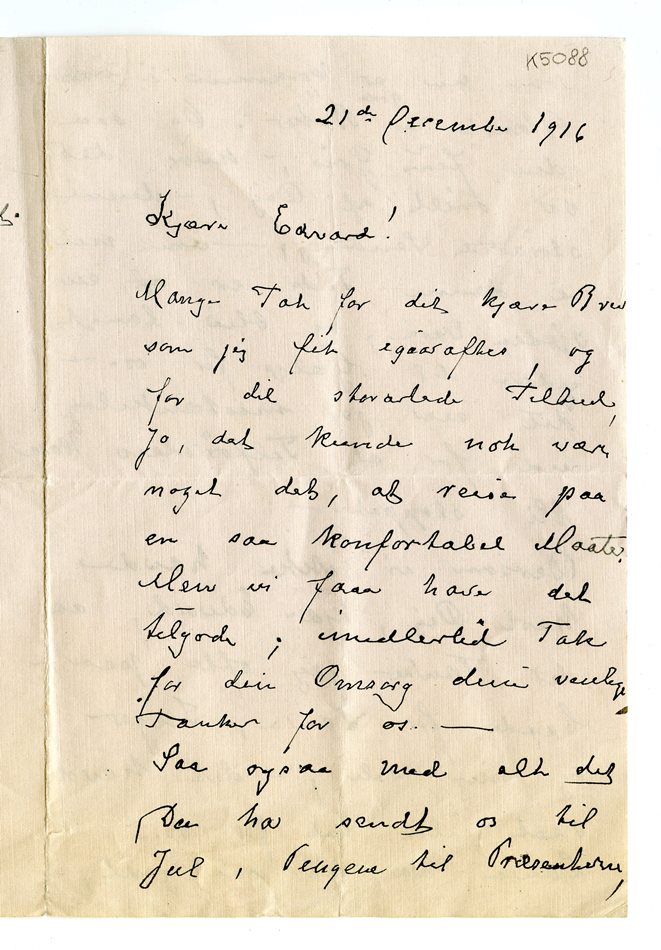 K5088
21de December 1916
Kjære Edvard!
Mange Tak for dit kjære Brev
som jeg fik igaaraftes, og
for dit storartede Tilbud,
Jo, det kunde nok være
noget det, at reise paa
en saa konfortabel Maate.
Men vi faaa have det
tilgode; imidlertid Tak
for din Omsorg dine venlige
Tanker for os. —
Saa ogsaa med alt det
Du ha sendt os til
Jul, Pengene til Præsenterne,